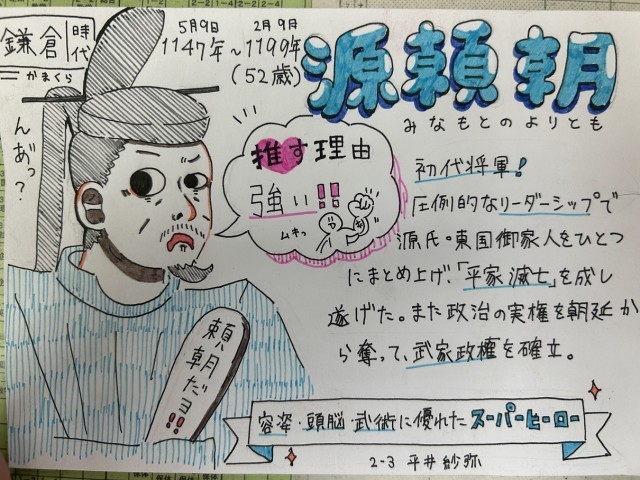 鎌倉時代
かまくら
5月9日 2月9日
1147年~1199年
(52歳)
源頼朝
みなもとのよりとも
んあ"っ?
推す理由
強い!!
ムキッ
初代将軍!
圧倒的なリーダーシップで
源氏・東国御家人をひとつ
にまとめ上げ、「平家滅亡」を成し
遂げた。また政治の実権を朝廷か
ら奪って、武家政権を確立。
頼朝だヨ!!
容姿・頭脳・武術に優れたスーパーヒーロー
2-3 平井紗弥